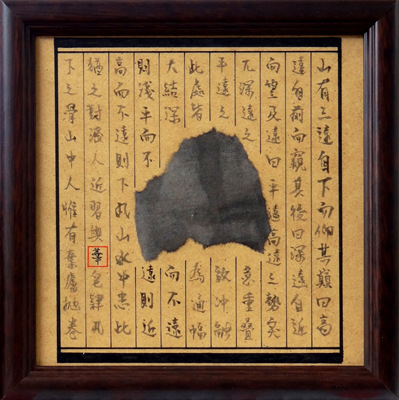 山有三遠自下而仰其巔曰高
遠自前而窺其後曰深遠自近
而望及遠曰平遠高遠之勢突
兀深遠之意重疊
平遠之致冲融
此處皆為通幅
大結深而不遠
則淺平而不遠則近
高而不遠則下凡山水中患此
猶之對淺人近習與色肆凡
下之學山中人惟有棄廬拋卷